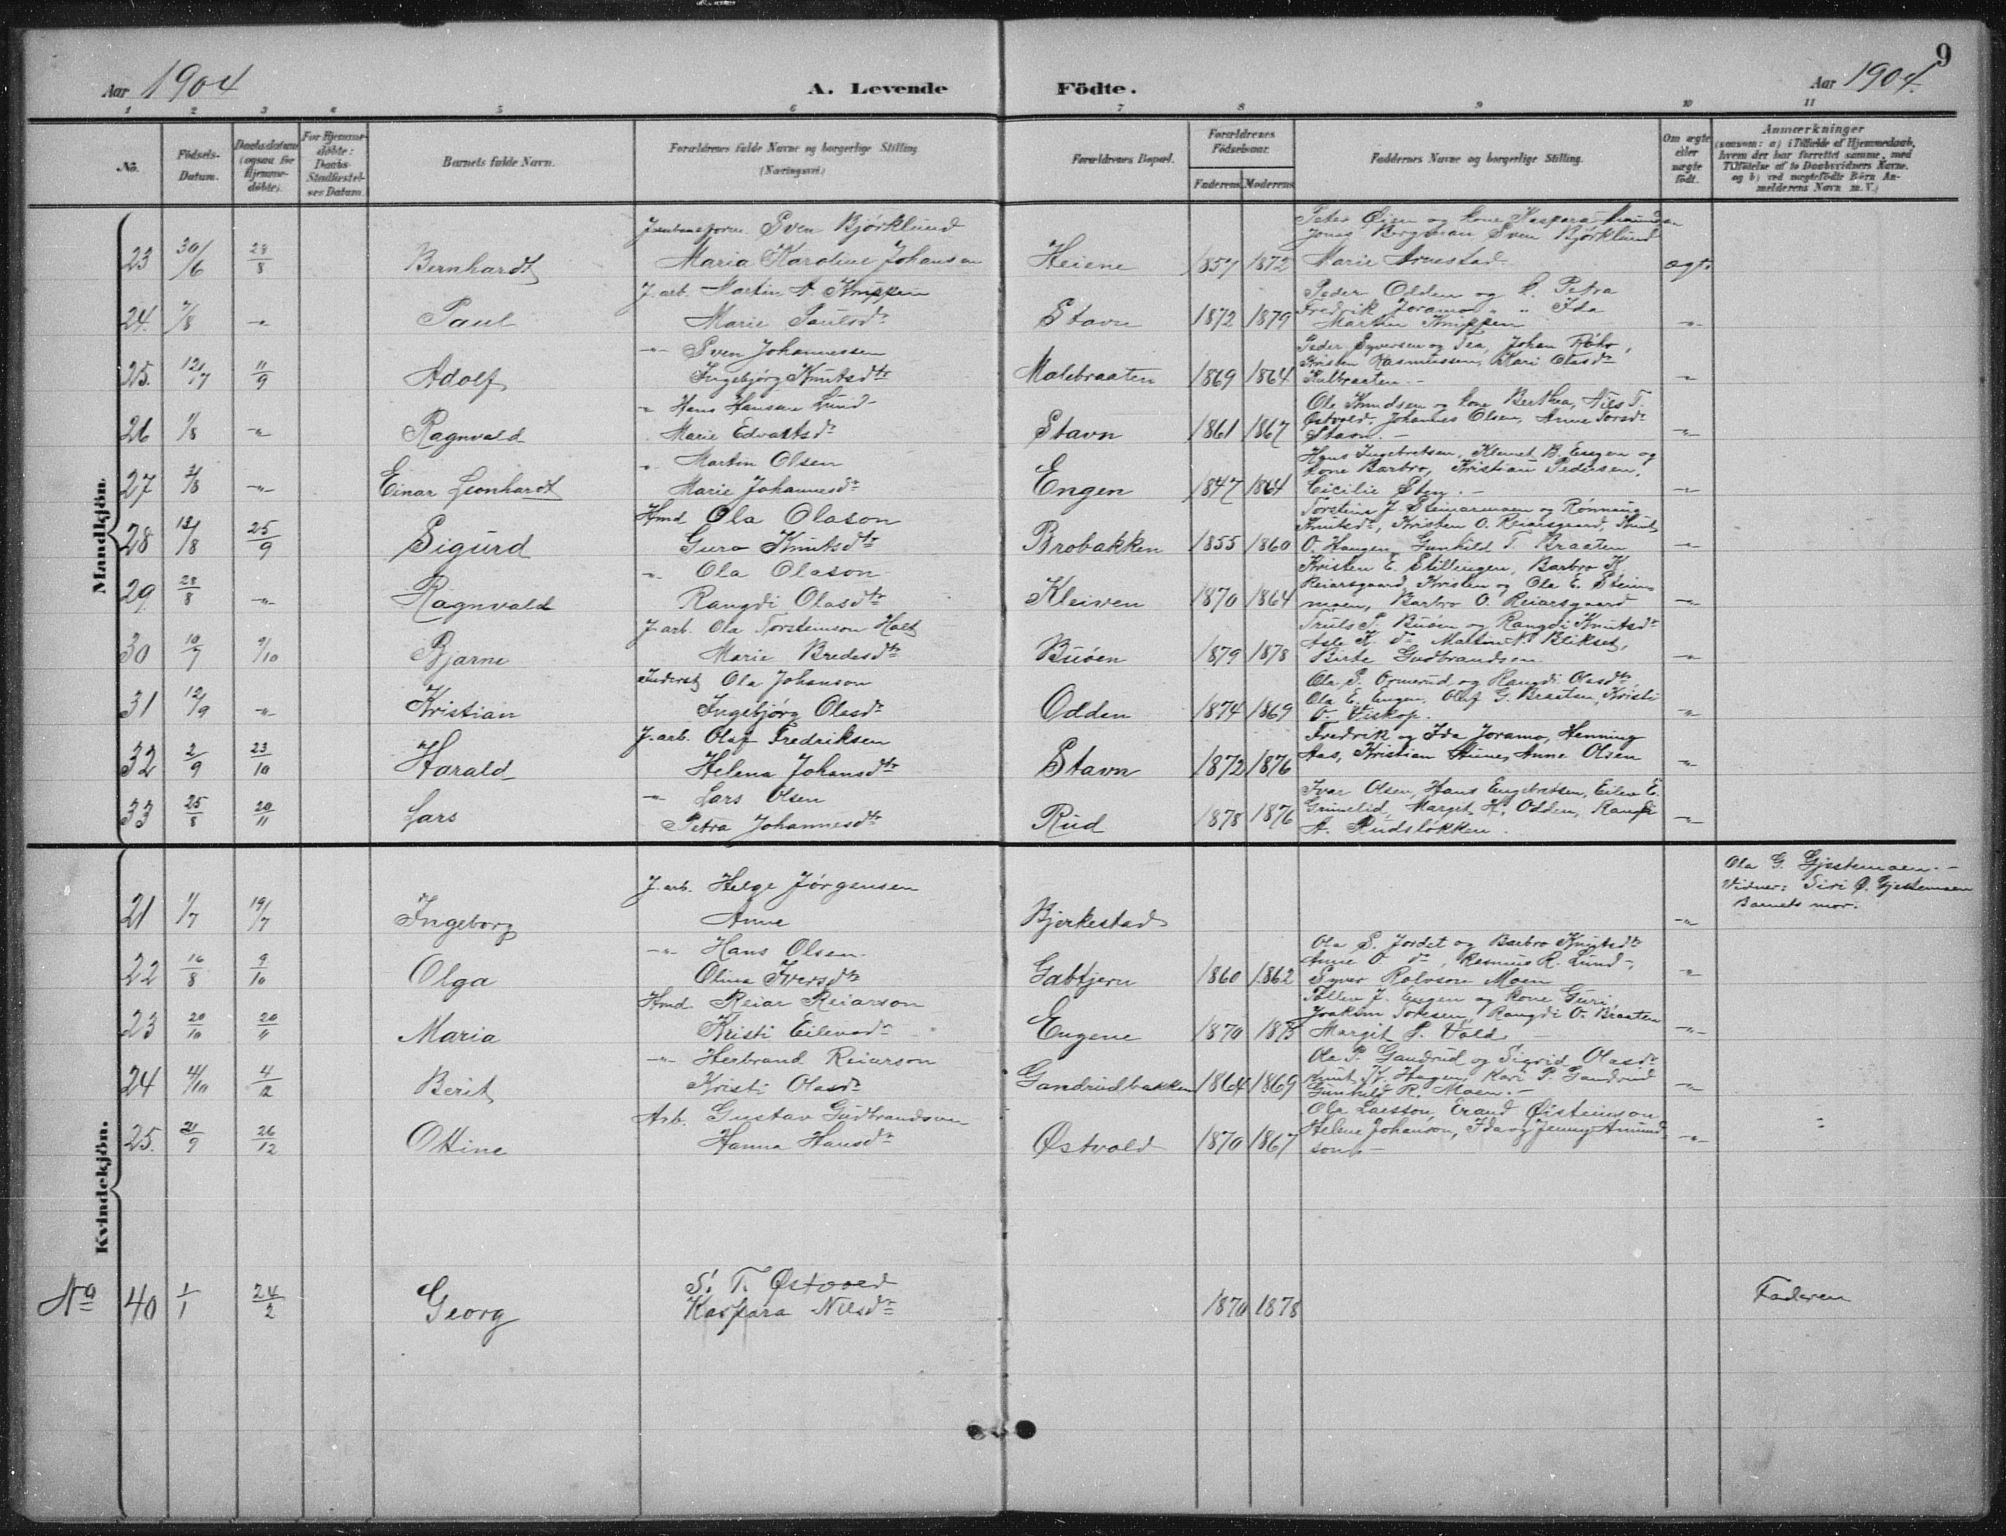 9
Aar 1904
A. Levende Födte.
Aar 1904.
1 2 3 4 5 6 7 8 9 10 11
No.
Födsels-Datum.
Daabsdatum (ogsaa for Hjemme-döbte).
For Hjemme-döbte: Daabs-Stadfæstel-ses Datum.
Barnets fulde Navn.
Forældrenes fulde Navne og borgerlige Stilling (Næringsvei)
Forældrenes Bopæl.
Forældrenes Födselsaar.
Faderens. Moderens.
Faddernes Navne og borgerlige Stilling.
Om ægte eller uægte födt.
Anmærkninger
(saasom: a) i Tilfælde af Hjemmedaab, hvem der har forrettet samme, med Tilföielse af to Daabsvidners Navne, og b) ved uægtefödte Börn An-melderens Navn m. V.)
Mandkjön.
23 30/6 28/8 Bernhardt
Sven Bjørklund
Maria Karoline Johansen
Heiene 1857 1872
Peter Øien og kone Kaspara
Jonas Bergman, Sven Bjørklund
Marie Arnestad
ægt.
24. 7/8 -"- Paul
J. arb. Martin A Knippen
Marie Paulsdtr
Stavn 1872 1879
Peder Odden og k. Petra
Fredrik Joramo, " " Ida
Martin Knippen
-"-
25. 12/7 11/9 Adolf
-"- Sven Johannessen
Ingebjørg Knutsdtr
Malebraaten 1869 1864
Peder Syversen og Tea, Johan
Kristen Rasmussen, Kari Olasdtr
Kulbraaten. -
-"-
26 1/8 -"- Ragnvald
" Hans Hansen Lund
Marie Edvartsdtr
Stavn 1861 1867
Ole Knudsen og kone Berthea, Nils T.
Østvold, Johannes Olsen, Anne Torsdtr
Stavn. -
-"-
27 3/8 -"- Einar Leonhardt
" Martin Olsen
Marie Johannesdtr
Engen 1847 1864
Hans Ingebretsen, Klemet B. Engen og
kone Barbro, Kristian Pedersen,
Cicilie Sten. -
-"-
28 13/8 25/9 Sigurd
Hmd Ola Olason
Guro Knutsdtr
Brobakken 1855 1860
Torstein J Steinarmoen og Rønnaug
Knutsdtr, Kristen O. Reiarsgaard, Knut
O. Haugen, Gunhild T. Braaten
-"-
29. 28/8 -"- Ragnvald
" Ola Olason
Rangdi Olasdtr
Kleiven 1870 1864
Kristen E. Stillingen, Barbro K.
Reiarsgaard, Kristen og Ola E. Stein-
moen, Barbro O. Reiarsgaard
-"-
30 10/7 9/10 Bjarne
J. arb. Ola Torsteinson Halt
Marie Bredesdtr
Buøen 1879 1878
Truls P. Buøen og Rangdi Knutsdtr
Asle K. dtr, Martin N. Blikset,
Birte Gudbrandsen.
-"-
31 12/9 -"- Kristian
Inderst Ola Johanson
Ingebjørg Olesdtr
Odden 1874 1869
Ole S. Ormerud og Rangdi Olasdtr,
Ola E. Engen, Oluf G. Braaten, Kristi
O. Viskop.
-"-
32 2/9 23/10 Harald
J. arb. Olaf Fredriksen
Helena Johansdtr
Stavn 1872 1876
Fredrik og Ida Joramo, Henning
Aas, Kristian Hunes, Anne Olsen
-"-
33 25/8 20/11 Lars
-"- Lars Olsen
Petra Johannesdtr
Rud 1878 1876
Ivar Olsen, Hans Engebretsen, Eilev E.
Grimelid, Marget H. Odden, Rangdi
A. Rudsløkken.
-"-
Kvindekjön.
21 1/7 19/7 Ingeborg
J. arb. Helge Jørgensen
Anne
Bjerkestad
-"-
Ola G. Gjestemoen. -
Vidner: Siri Ø. Gjestemoen
Barnets mor.
22 16/8 9/10 Olga
-"- Hans Olsen.
Olina Iversdtr
Gabtjern 1860 1862
Ola S. Jordet og Barbro Knutsdtr
Anne O dtr, Rasmus R. Lund,
Syver Rolvson Moen
-"-
23 20/10 20/11 Maria
Hmd Reiar Reiarson
Kristi Eilevsdtr
Engene 1870 1873
Tollev J. Engen og kone Guri,
Joakim Toresen, Rangdi O. Braaten
Margit S. Vold
-"-
24 4/10 4/12 Berit
-"- Herbrand Reiarson
Kristi Olasdtr
Gandrudbakken 1864 1869
Ola P. Gandrud og Sigrid Olasdtr
Knut K. Haugen, Kari P. Gandrud
Gunhild R. Moen. -
-"-
25. 21/9 26/12 Ottine
Arb. Gustav Gudbrandsen
Hanna Hansdtr
Østvold 1870 1867
Ole Larsson, Erand Øisteinson
Helene Johanson, Ida og Jenny Amund-
son. -
-"-
No 40 1/1 24/2 Georg
S. T. Østvold
Kaspara Nilsdtr
1870 1878
Faderen